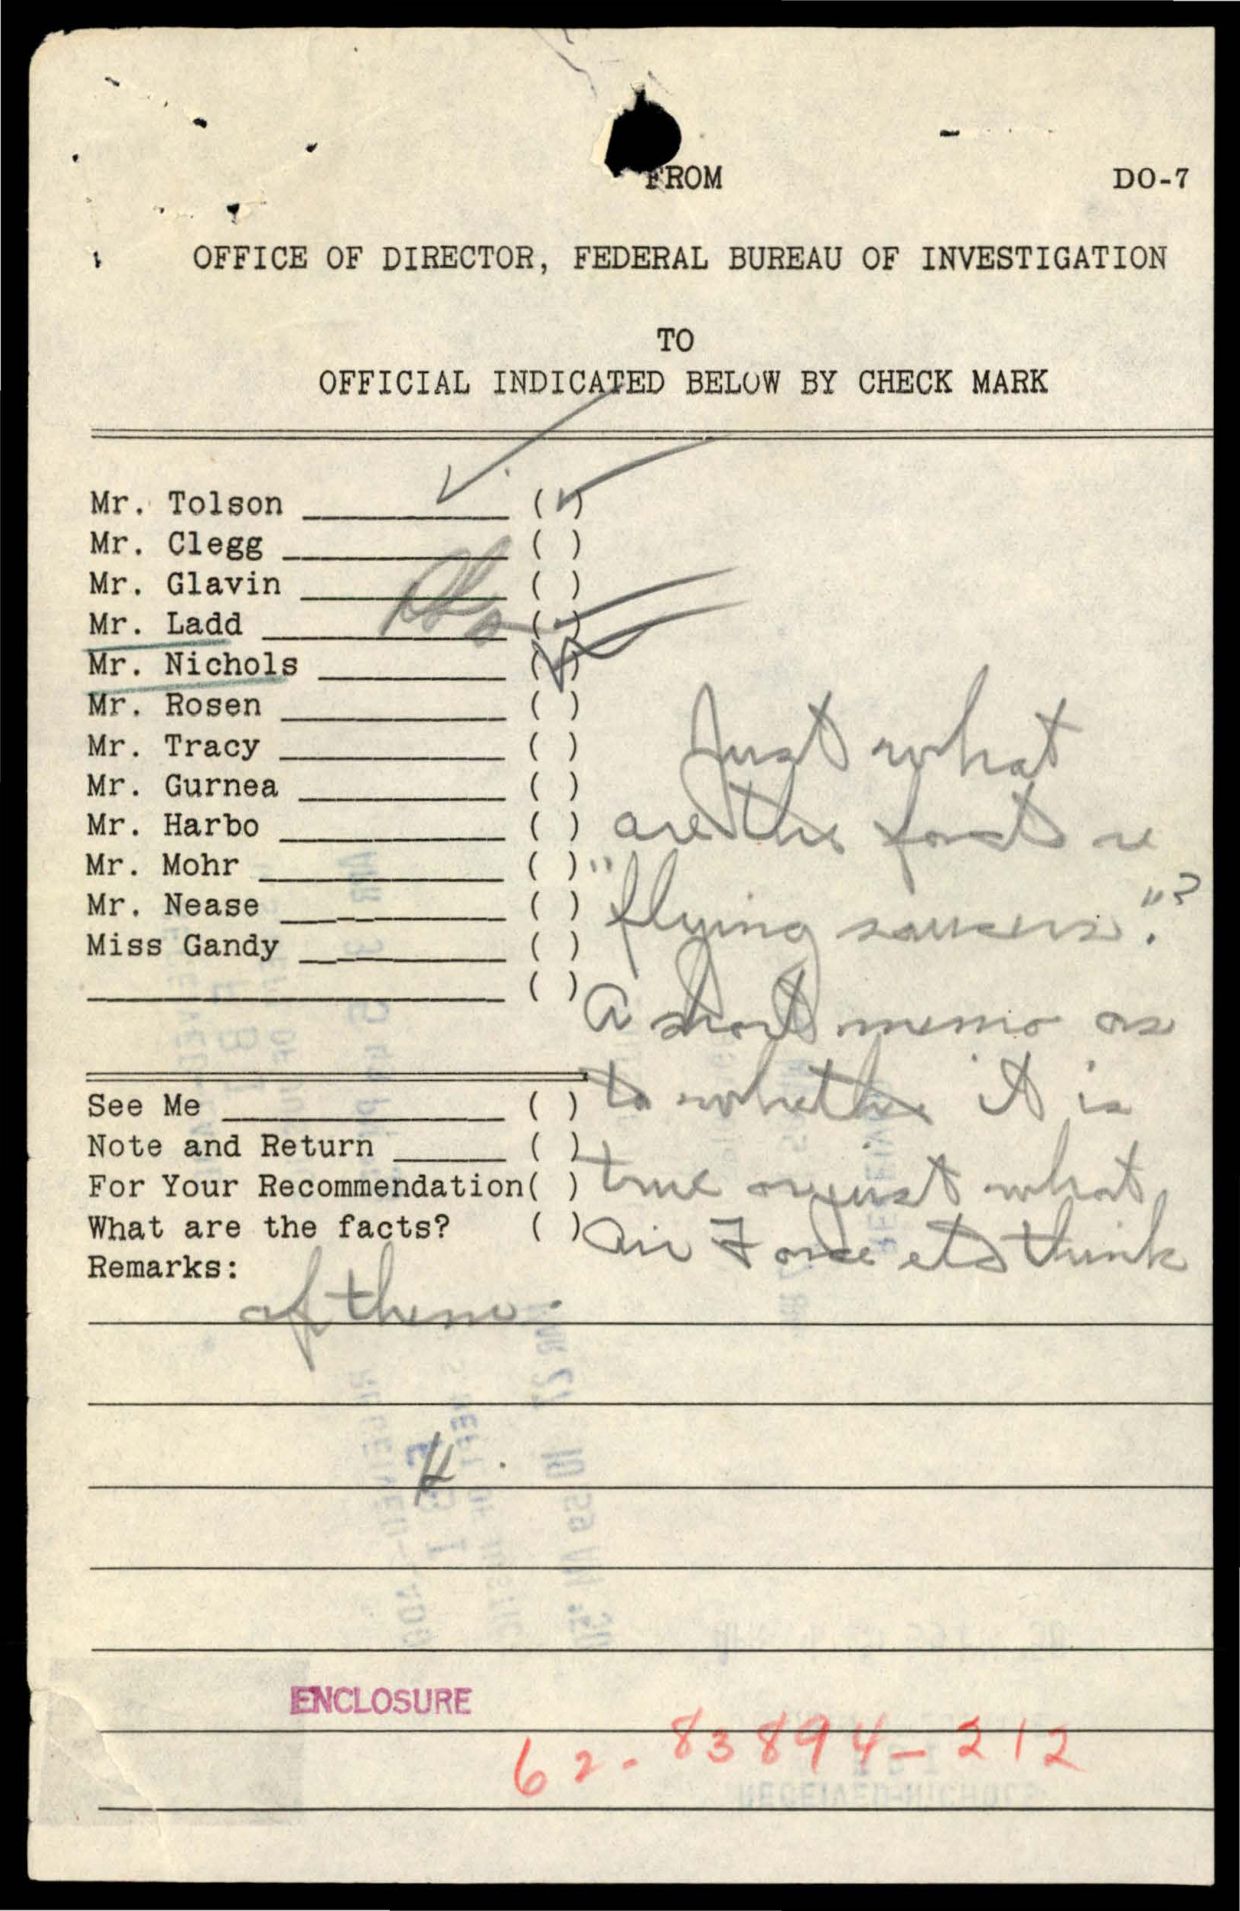 FROM
DO-7
OFFICE OF DIRECTOR, FEDERAL BUREAU OF INVESTIGATION
TO
OFFICIAL INDICATED BELOW BY CHECK MARK
Mr. Tolson __________ (✓)
Mr. Clegg __________ ( )
Mr. Glavin __________ ( )
Mr. Ladd __________ (✓)
Mr. Nichols __________ (✓)
Mr. Rosen __________ ( )
Mr. Tracy __________ ( )
Mr. Gurnea __________ ( )
Mr. Harbo __________ ( )
Mr. Mohr __________ ( )
Mr. Nease __________ ( )
Miss Gandy __________ ( )
__________ ( )
See Me __________ ( )
Note and Return ______ ( )
For Your Recommendation( )
What are the facts? ( )
Remarks:
Just what
are the facts re
"flying saucers."?
A short memo as
to whether it is
true or just what
Air Force etc think
of them.
H.
ENCLOSURE
62-83894-212
RECEIVED-NICHOLS